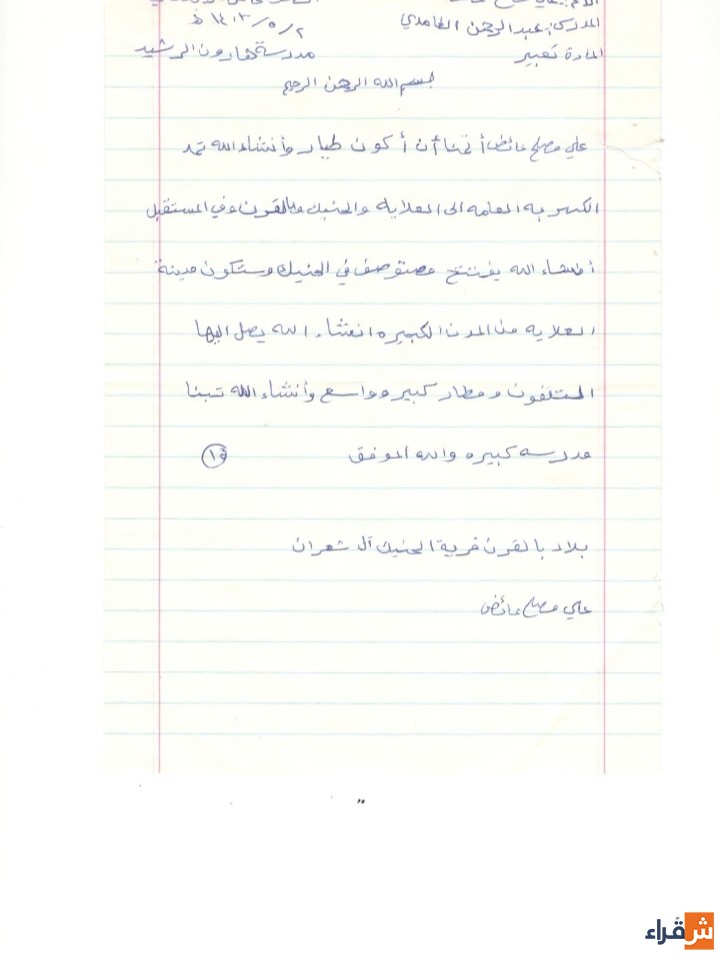 المدرس: عبد الرحمن الغامدي
٢/٥/١٤١٣ هـ
المادة تعبير
مدرسة هارون الرشيد
بسم الله الرحمن الرحيم
علي مصلح عائض أتمنا أن أكون طيار وأنشاء الله تمد
الكهربه العامه الى العلايه والحنيك وبالقرن وفي المستقبل
أنشاء الله يفتتح مستوصف في الحنيك وستكون مدينة
العلايه من المدن الكبيره انشاء الله يصل اليها
المتلفون ومطار كبير وواسع وأنشاء الله تبنا
مدرسه كبيره والله الموفق
بلاد بالقرن قرية الحنيك آل شعران
علي مصلح عائض
شقراء